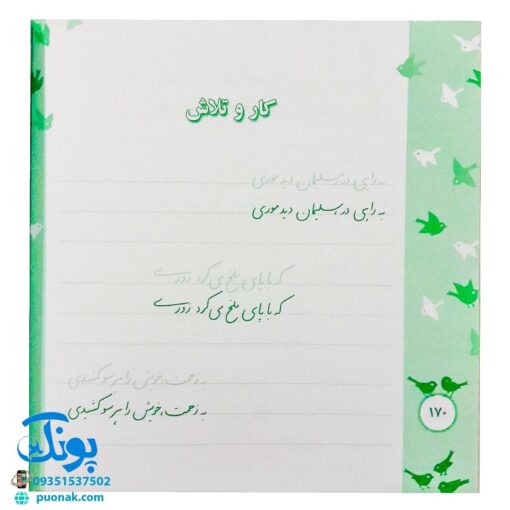 کار و تلاش
به راهی در، سلیمان دید موری
به راهی در، سلیمان دید موری
که با پای ملخ می‌کرد زوری
که با پای ملخ می‌کرد زوری
به زحمت، خویش را هر سو کشیدی
به زحمت، خویش را هر سو کشیدی
۱۷۰
پونک
09351537502
puonak.com